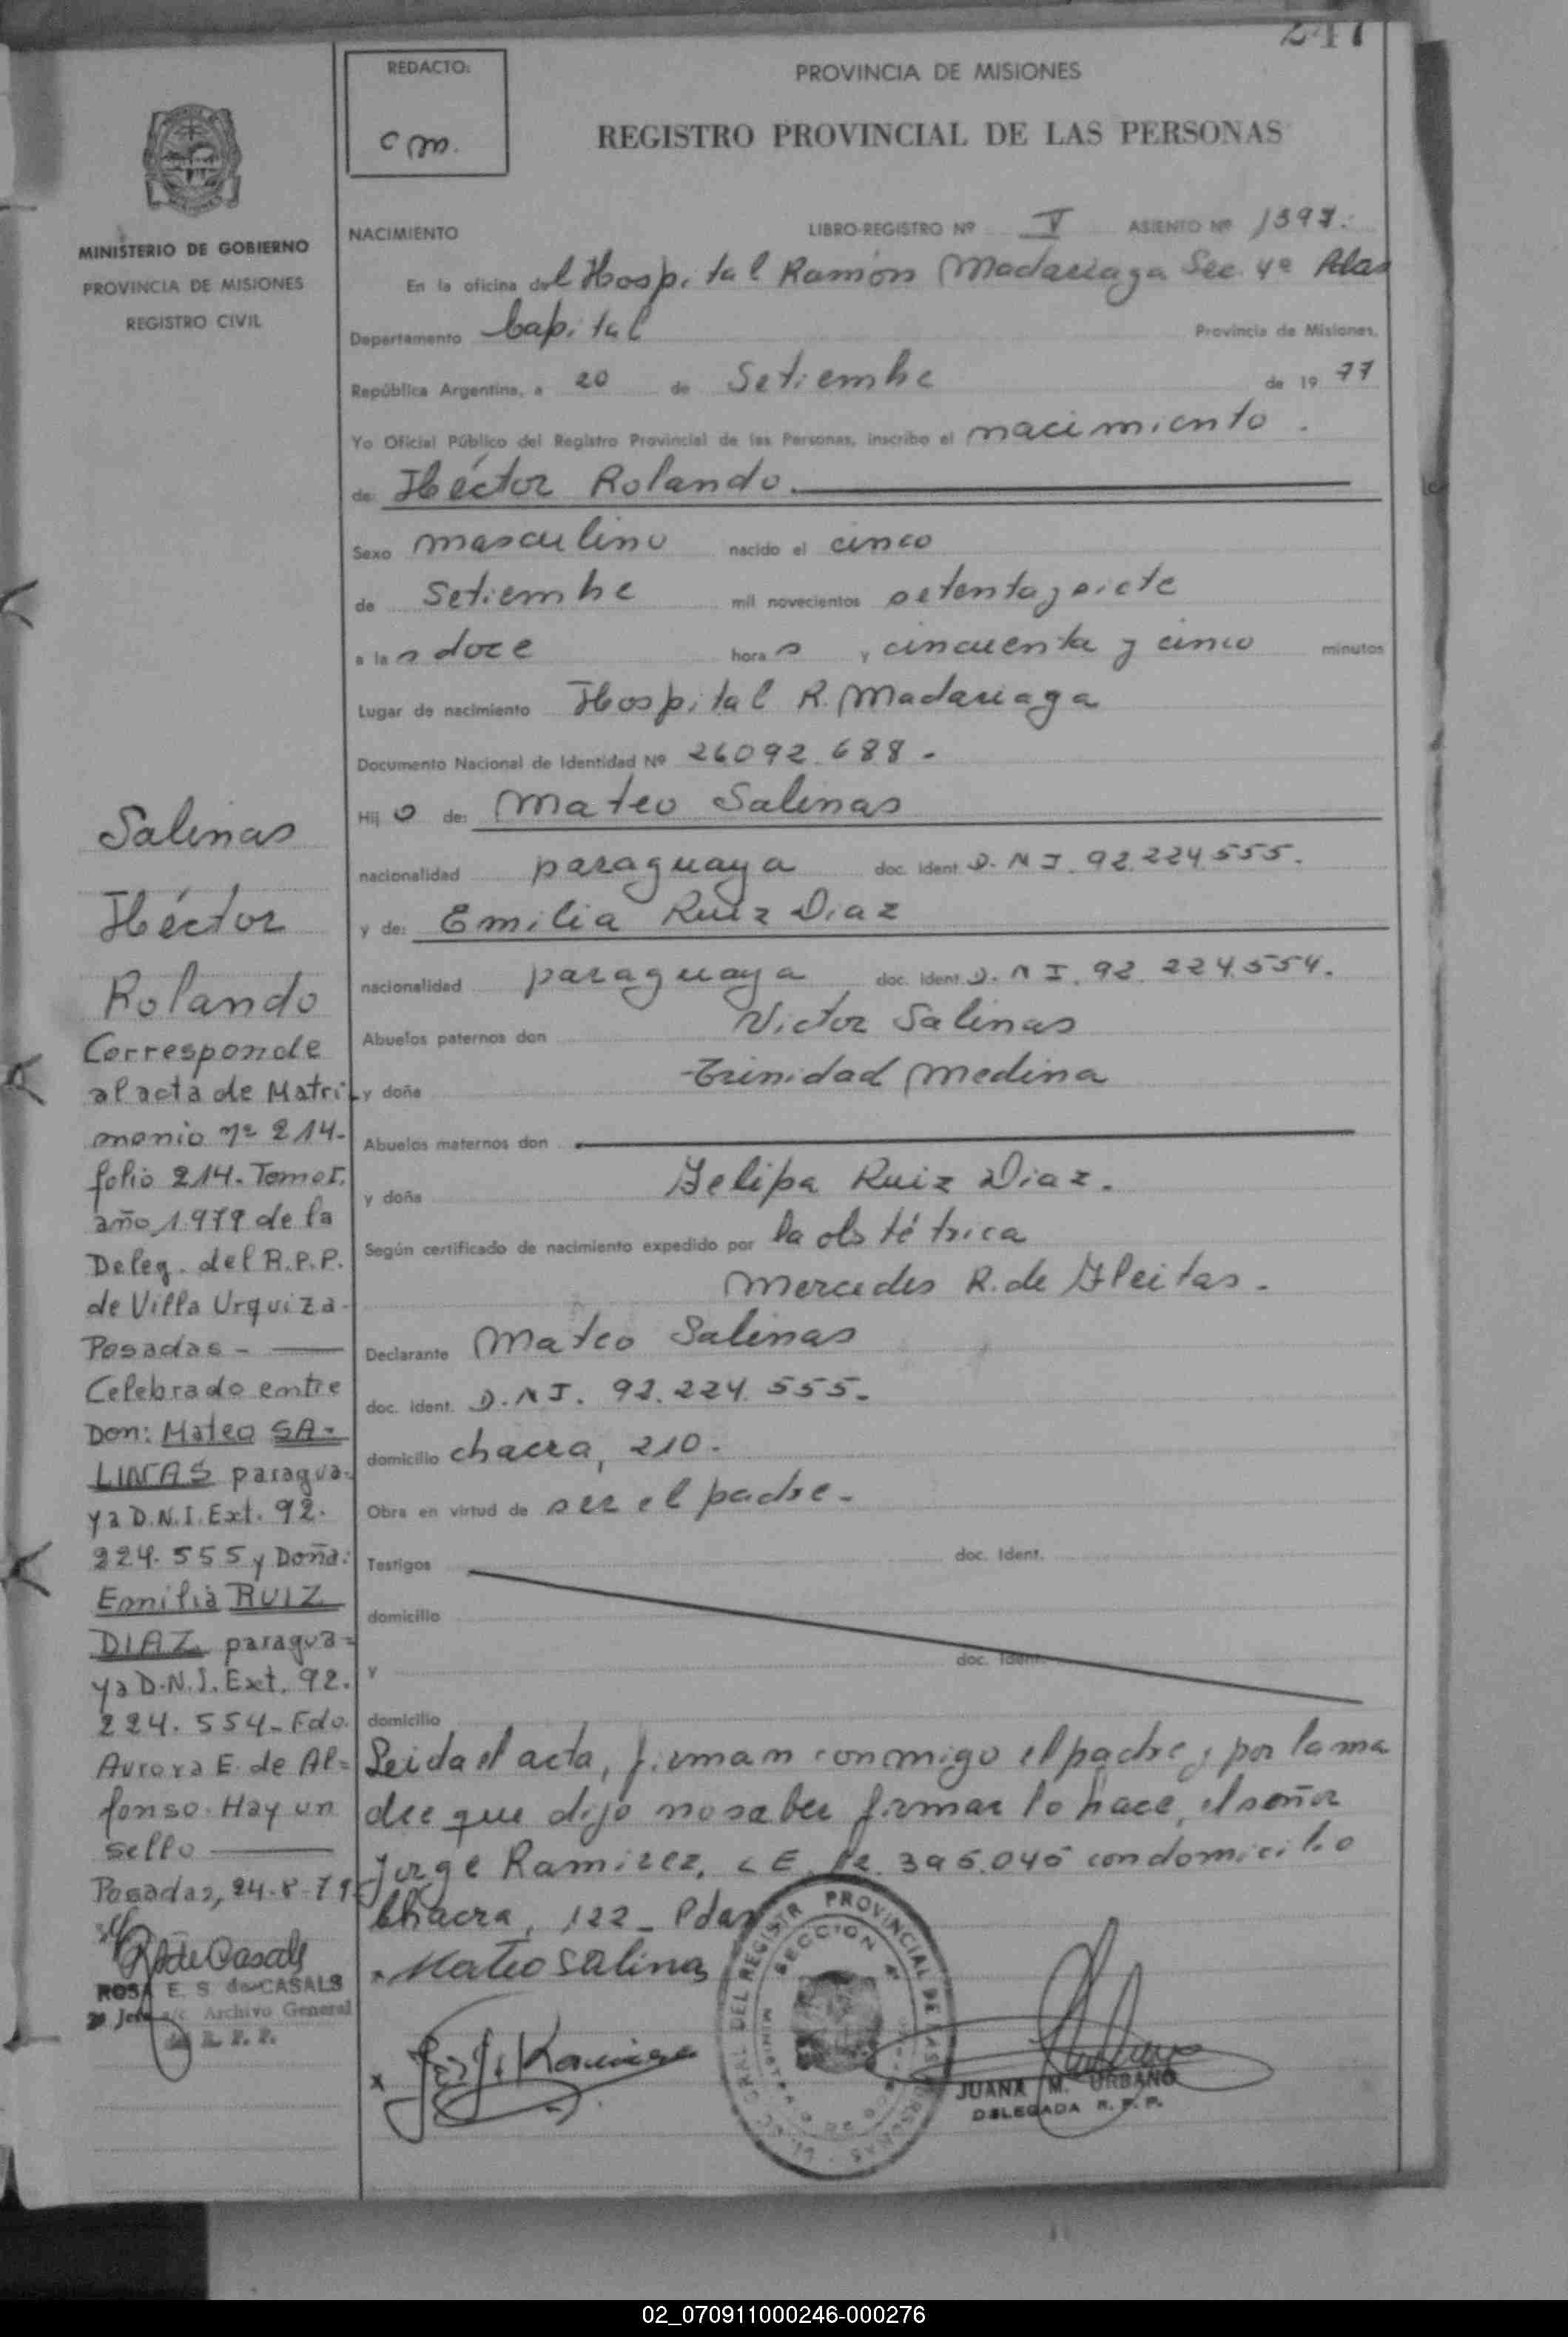 247
REDACTO:
cm.
PROVINCIA DE MISIONES
REGISTRO PROVINCIAL DE LAS PERSONAS
MINISTERIO DE GOBIERNO
PROVINCIA DE MISIONES
REGISTRO CIVIL
NACIMIENTO LIBRO-REGISTRO Nº V ASIENTO Nº 1397.
En la oficina del Hospital Ramón Madariaga Sec. 4ª Pdas
Departamento Capital Provincia de Misiones,
República Argentina, a 20 de Setiembre de 19 77
Yo Oficial Público del Registro Provincial de las Personas, inscribo el nacimiento.
de: Héctor Rolando.
Sexo masculino nacido el cinco
de Setiembre mil novecientos setenta y siete
a las doce horas y cincuenta y cinco minutos
Lugar de nacimiento Hospital R. Madariaga
Documento Nacional de Identidad Nº 26092.688-
Hijo de: Mateo Salinas
nacionalidad paraguaya doc. ident. D.N.I. 92.224.555.
y de: Emilia Ruiz Diaz
nacionalidad paraguaya doc. ident. D.N.I. 92.224.554.
Abuelos paternos don Victor Salinas
y doña Trinidad Medina
Abuelos maternos don
y doña Felipa Ruiz Diaz.
Según certificado de nacimiento expedido por la obstétrica
Mercedes R. de Fleitas.
Declarante Mateo Salinas
doc. ident. D.N.I. 92.224.555.
domicilio chacra, 210.
Obra en virtud de ser el padre-
Testigos doc. ident.
domicilio
y doc. ident.
domicilio
Leida el acta, firman conmigo el padre y por la ma
dre que dijo no saber firmar lo hace, el señor
Jorge Ramirez, C.E. 396.045 con domicilio
Chacra, 122- Pdas
Mateo Salinas
x
DEL REGISTR PROVINCIAL DE LAS PERSONAS
SECCION 4ª
JUANA M. URBANO
DELEGADA R. P. P.
Salinas
Héctor
Rolando
Corresponde
al acta de Matri
monio nº 214-
folio 214. Tomo I.
año 1979 de la
Deleg. del R.P.P.
de Villa Urquiza-
Posadas-
Celebrado entre
Don: Mateo SA=
LINAS paragua-
ya D.N.I. Ext. 92.
224.555 y Doña:
Emilia RUIZ
DIAZ paragua=
ya D.N.I. Ext. 92.
224.554- Fdo.
Aurora E. de Al=
fonso. Hay un
sello
Posadas, 24-8-79
ROSA E. S. de CASALS
Jefe a/c Archivo General
R. P. P.
02_070911000246-000276